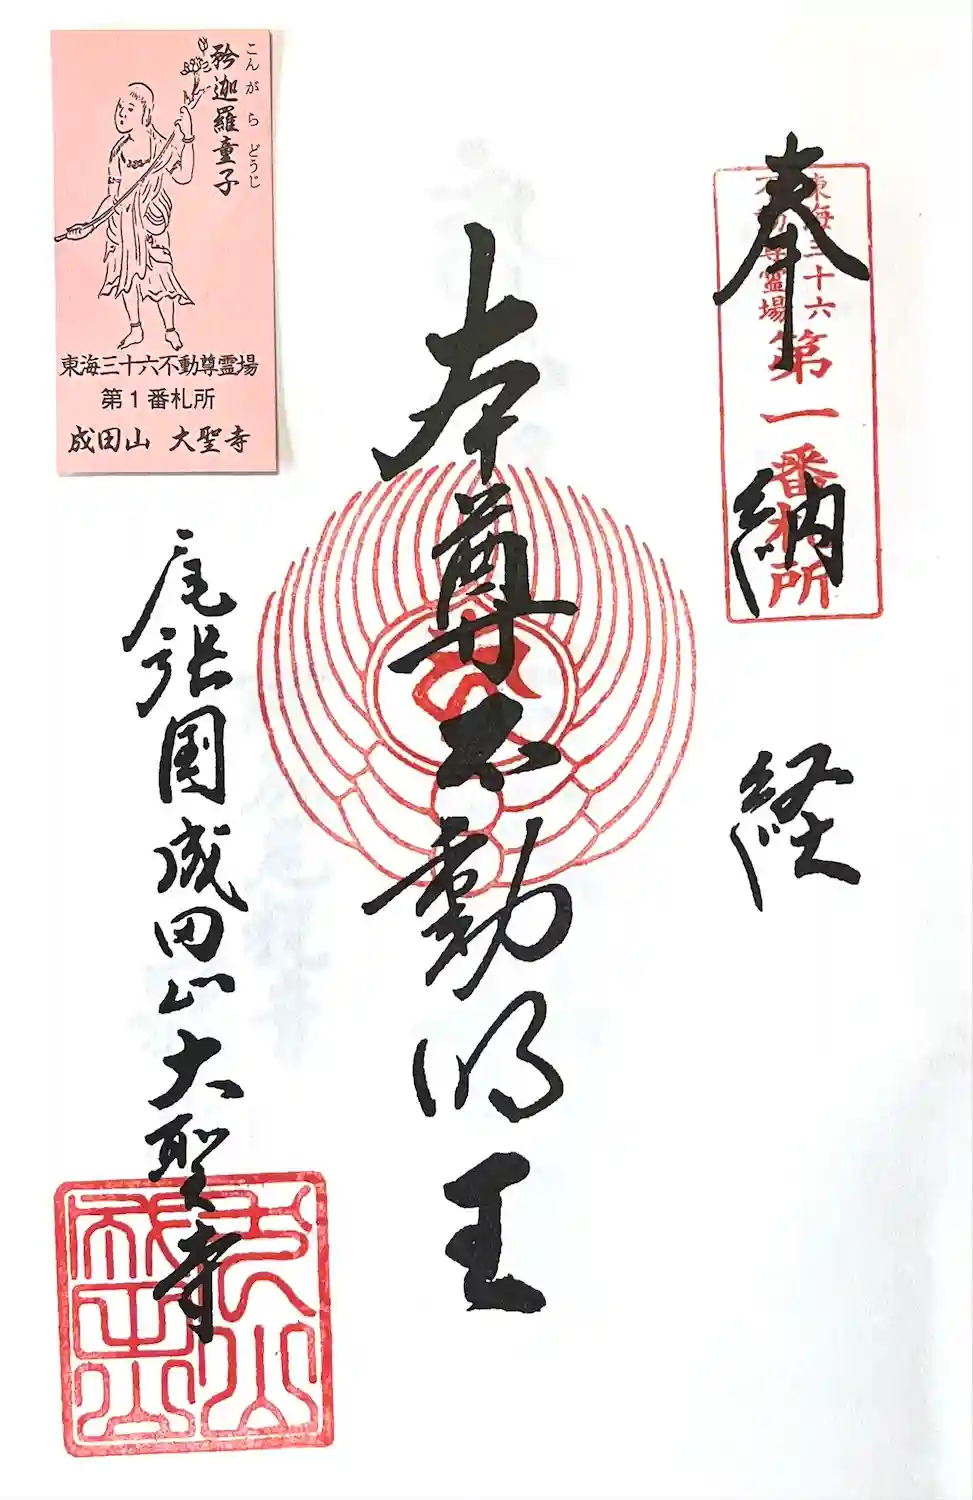 奉納経
東海三十六
不動尊霊場
第一番札所
本尊不動明王
尾張国成田山大聖寺
こんがら どうじ
矜迦羅童子
東海三十六不動尊霊場
第1番札所
成田山 大聖寺